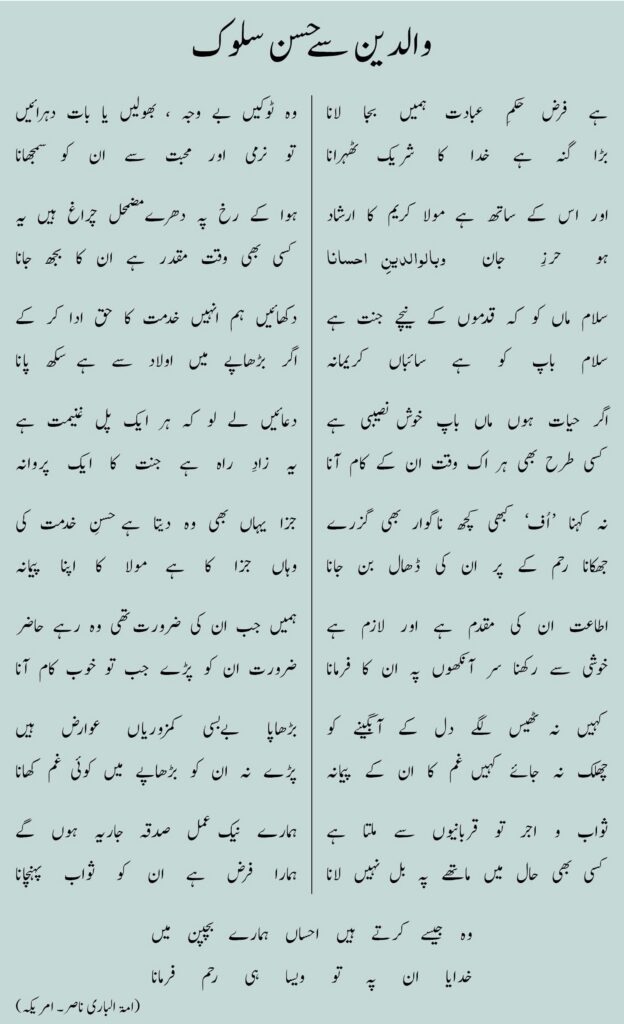 والدین سے حسن سلوک
ہے فرض حکمِ عبادت ہمیں بجا لانا
بڑا گنہ ہے خدا کا شریک ٹھہرانا
اور اس کے ساتھ ہے مولا کریم کا ارشاد
ہو حرزِ جان وبالوالدینِ احسانا
سلام ماں کو کہ قدموں کے نیچے جنت ہے
سلام باپ کو ہے سائباں کریمانہ
اگر حیات ہوں ماں باپ خوش نصیبی ہے
کسی طرح بھی ہر اک وقت ان کے کام آنا
نہ کہنا ’اُف‘ کبھی کچھ ناگوار بھی گزرے
جھکانا رحم کے پر ان کی ڈھال بن جانا
اطاعت ان کی مقدم ہے اور لازم ہے
خوشی سے رکھنا سر آنکھوں پہ ان کا فرمانا
کہیں نہ ٹھیس لگے دل کے آبگینے کو
چھلک نہ جائے کہیں غم کا ان کے پیمانہ
ثواب و اجر تو قربانیوں سے ملتا ہے
کسی بھی حال میں ماتھے پہ بل نہیں لانا
وہ ٹوکیں بے وجہ ، بھولیں یا بات دہرائیں
تو نرمی اور محبت سے ان کو سمجھانا
ہوا کے رخ پہ دھرے مضمحل چراغ ہیں یہ
کسی بھی وقت مقدر ہے ان کا بجھ جانا
دکھائیں ہم انہیں خدمت کا حق ادا کر کے
اگر بڑھاپے میں اولاد سے ہے سکھ پانا
دعائیں لے لو کہ ہر ایک پل غنیمت ہے
یہ زادِ راہ ہے جنت کا ایک پروانہ
جزا یہاں بھی وہ دیتا ہے حسنِ خدمت کی
وہاں جزا کا ہے مولا کا اپنا پیمانہ
ہمیں جب ان کی ضرورت تھی وہ رہے حاضر
ضرورت ان کو پڑے جب تو خوب کام آنا
بڑھاپا بےبسی کمزوریاں عوارض ہیں
پڑے نہ ان کو بڑھاپے میں کوئی غم کھانا
ہمارے نیک عمل صدقہ جاریہ ہوں گے
ہمارا فرض ہے ان کو ثواب پہنچانا
وہ جیسے کرتے ہیں احساں ہمارے بچپن میں
خدایا ان پہ تو ویسا ہی رحم فرمانا
(امۃ الباری ناصر۔ امریکہ)